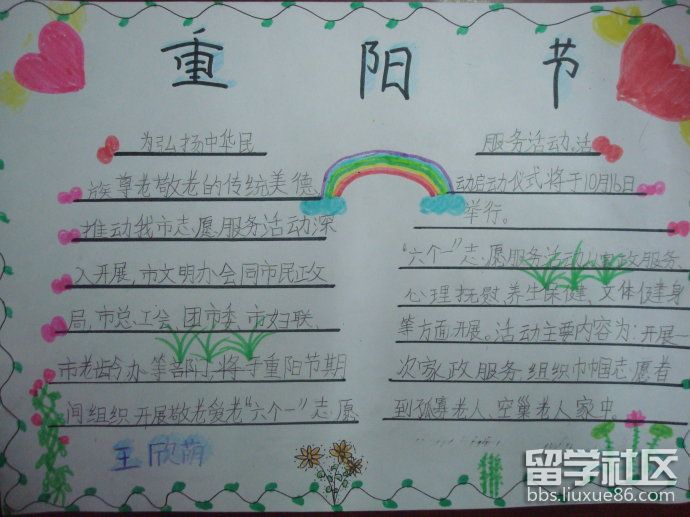 重阳节
为弘扬中华民
族尊老敬老的传统美德
推动我市志愿服务活动深
入开展,市文明办会同市民政
局,市总工会,团市委,市妇联、
市老龄办等部门,将于重阳节期
间组织开展敬老爱老“六个一”志愿
服务活动,活
动启动仪式将于10月16日
举行。
“六个一”志愿服务活动从家政服务
心理抚慰、养生保健、文体健身
等方面开展。活动主要内容为:开展一
次家政服务,组织巾帼志愿者
到孤寡老人、空巢老人家中。
王欣荫
留学社区
bbs.liuxue86.com